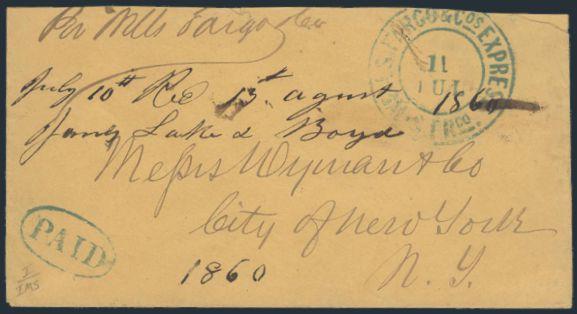 Per Wells Fargo & Co
WELLS, FARGO & COS EXPRESS
11
JUL
SN. FRCO.
July 10th Rec 13th agust 1860
Lake & Boyd
Messrs Wyman & Co
City of New York
N. Y.
1860
PAID
I
IMS